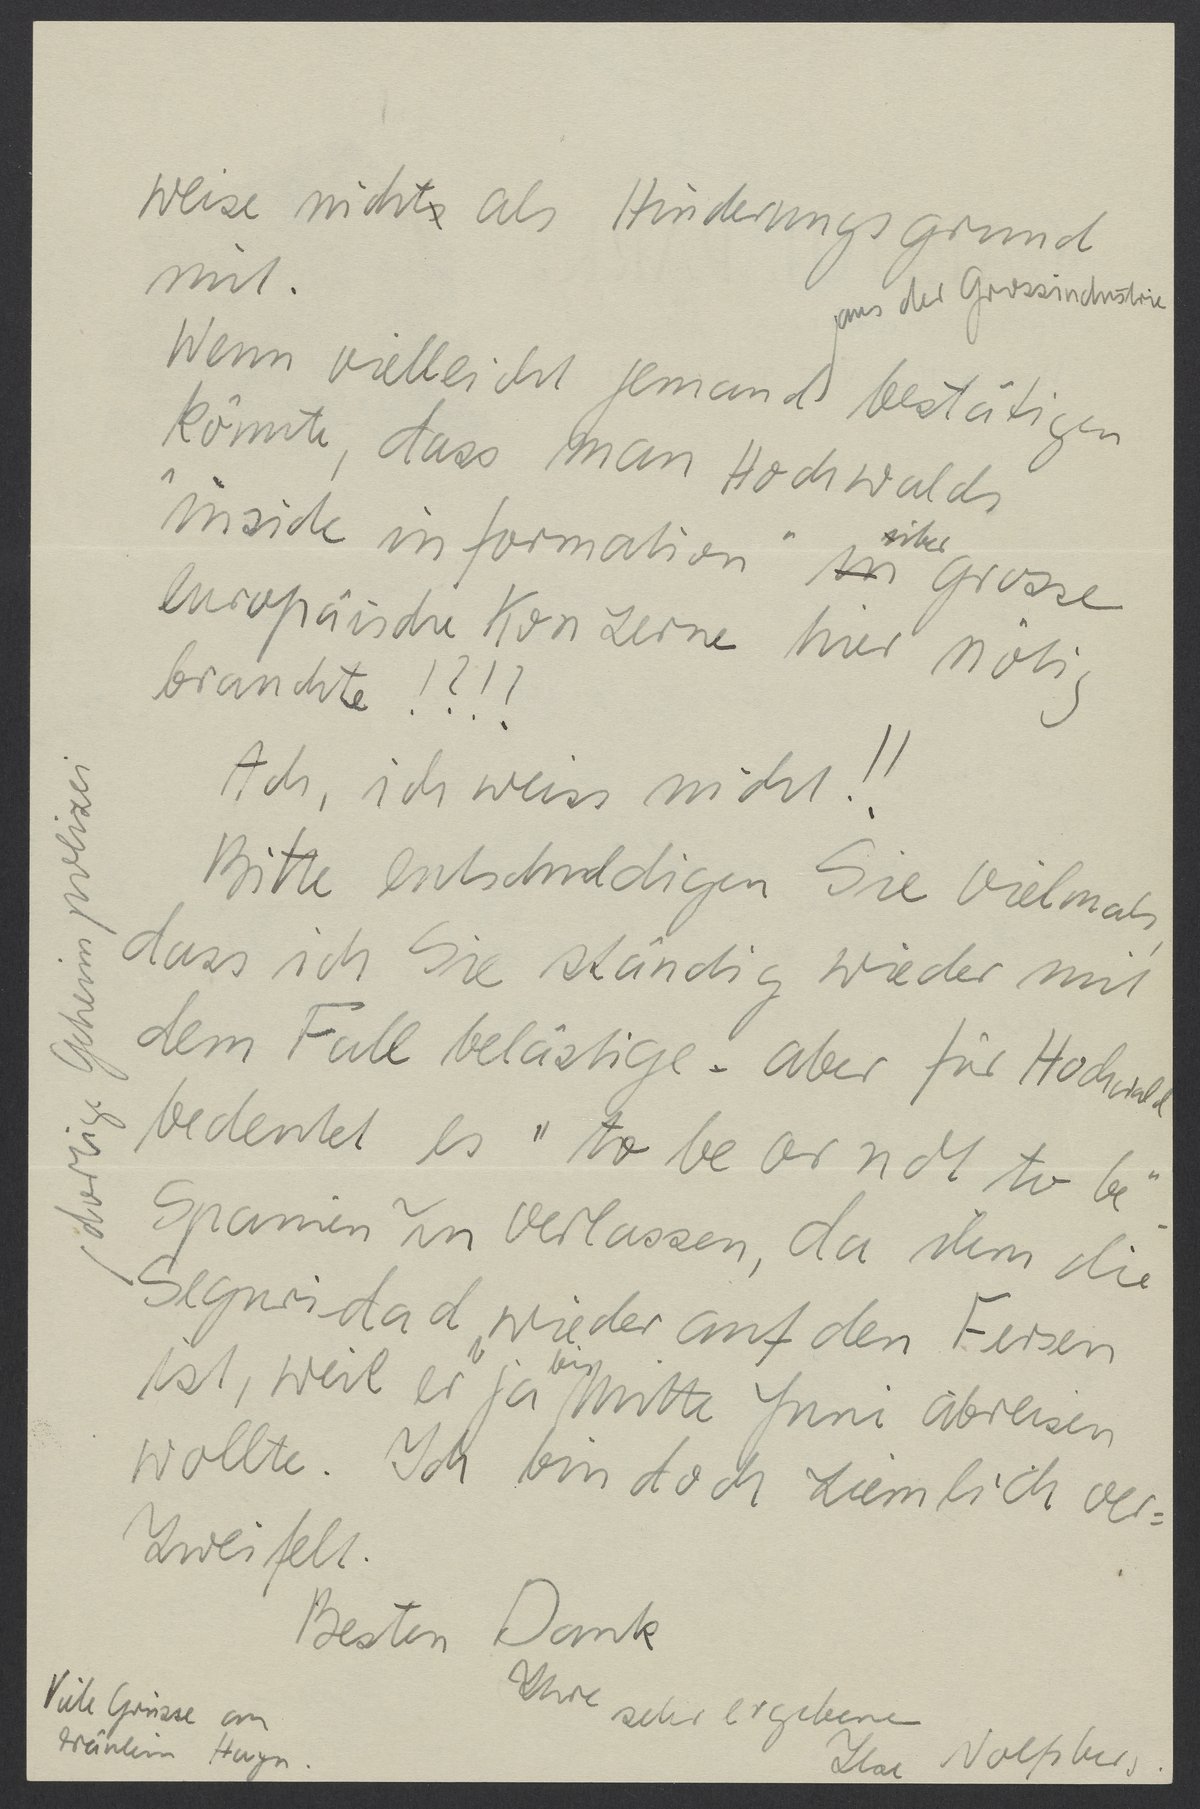 weise nichts als Hinderungsgrund
mit.
aus der Grossindustrie
Wenn vielleicht jemand bestätigen
könnte, dass man Hochwalds
"inside information" in über grosse
europäische Konzerne hier nötig
brauchte !?!?
Ach, ich weiss nicht!!
Bitte entschuldigen Sie vielmals,
dass ich Sie ständig wieder mit
dem Fall belästige - aber für Hochwald
bedeutet es "to be or not to be"
Spanien zu verlassen, da ihm die
Seguridad wieder auf den Fersen
ist, weil er ja bis Mitte Juni abreisen
wollte. Ich bin doch ziemlich ver=
zweifelt.
Besten Dank
Ihre
sehr ergebene
Ilse
Viele Grüsse an
Fräulein Hagn.
dortige Geheimpolizei